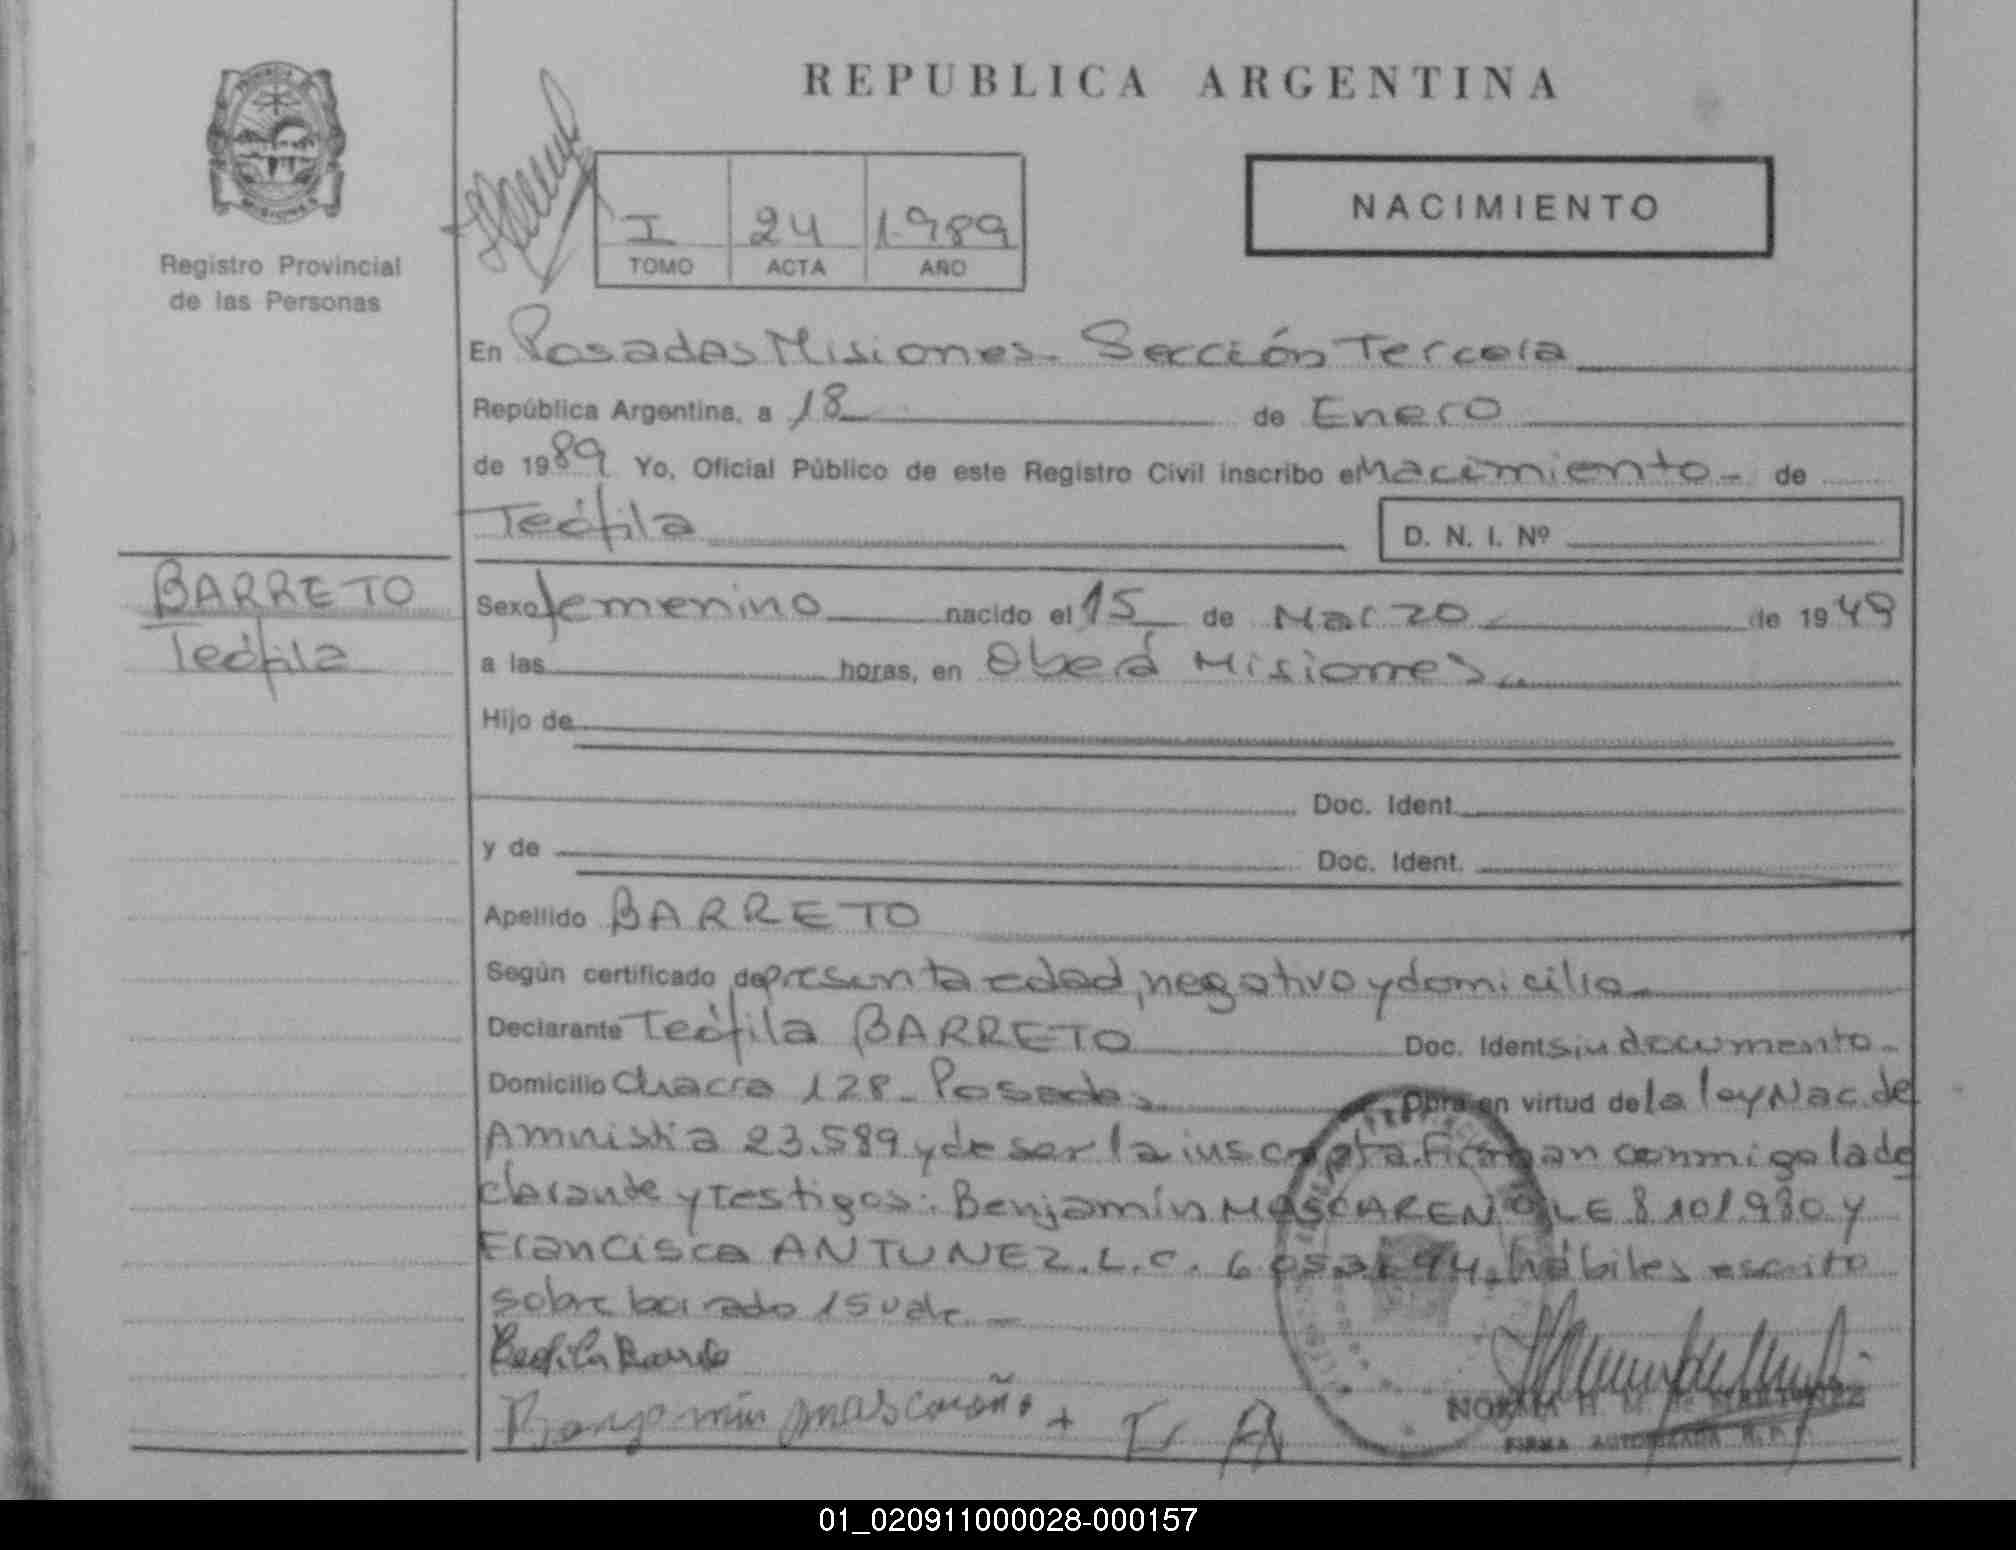 REPUBLICA ARGENTINA
MISIONES
Registro Provincial
de las Personas
I 24 1.989
TOMO ACTA AÑO
NACIMIENTO
En Posadas Misiones. Sección Tercera
República Argentina, a 18 de Enero
de 1989 Yo, Oficial Público de este Registro Civil inscribo el Nacimiento - de
Teófila
D. N. I. Nº
BARRETO
Teófila
Sexo femenino nacido el 15 de Marzo de 1949
a las horas, en Oberá Misiones
Hijo de
Doc. Ident.
y de Doc. Ident.
Apellido BARRETO
Según certificado de presunta edad, negativo y domicilio
Declarante Teófila BARRETO Doc. Ident. sin documento.
Domicilio Chacra 128 - Posadas Obra en virtud de la ley Nac. de
Amnistia 23.589 y de ser la inscripta. Firman conmigo la de
clarante y testigos: Benjamín MASCAREÑO LE 8101.980 y
Francisca ANTUNEZ. L.C. hábiles escrito
sobre borrado 15 vale.
Teofila Barreto
Benjamín mascareño +
NORMA H. M. de MARTINEZ
FIRMA AUTORIZADA R.P.P.
01_020911000028-000157